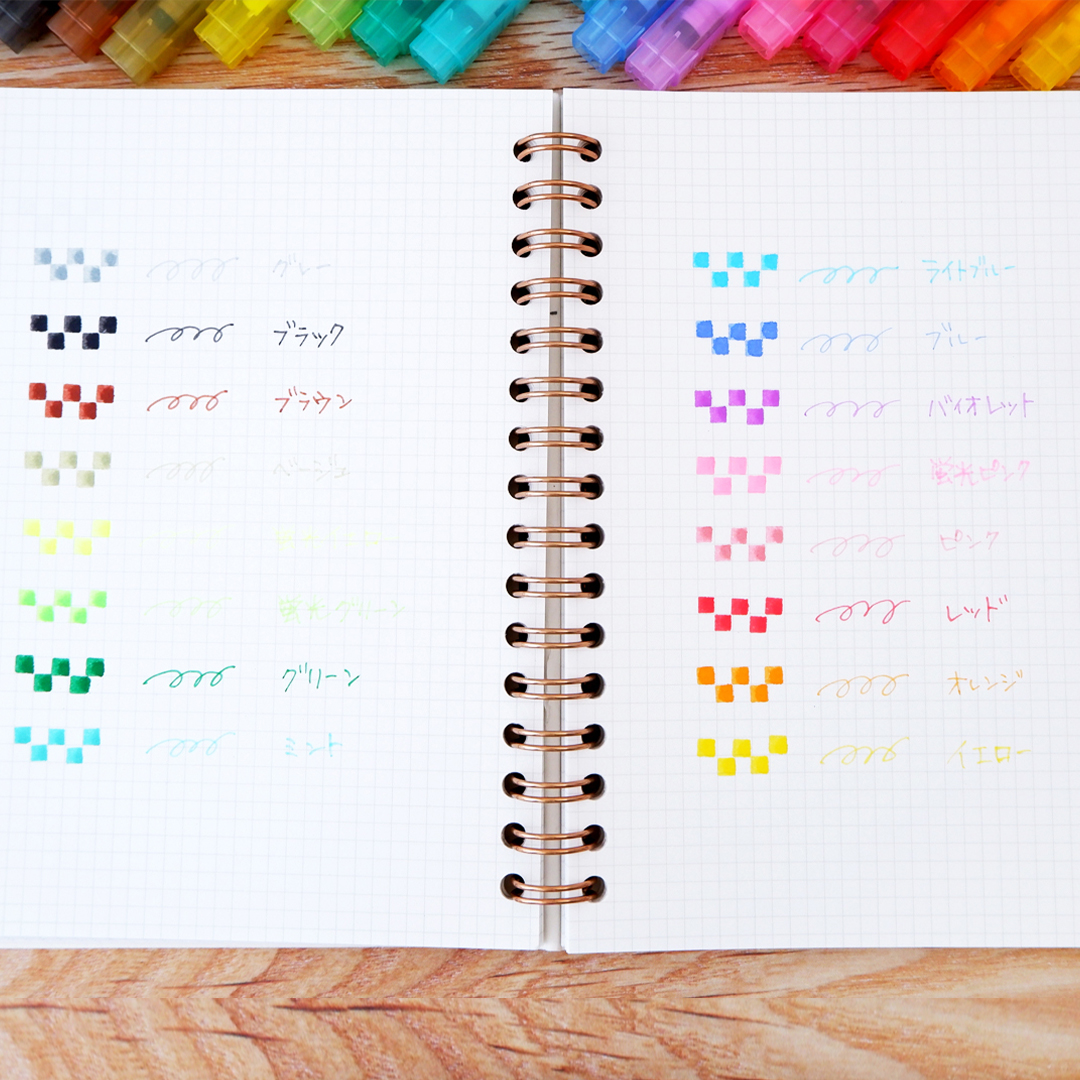 グレー
ブラック
ブラウン
ベージュ
蛍光グリーン
グリーン
ミント
ライトブルー
ブルー
バイオレット
蛍光ピンク
ピンク
レッド
オレンジ
イエロー